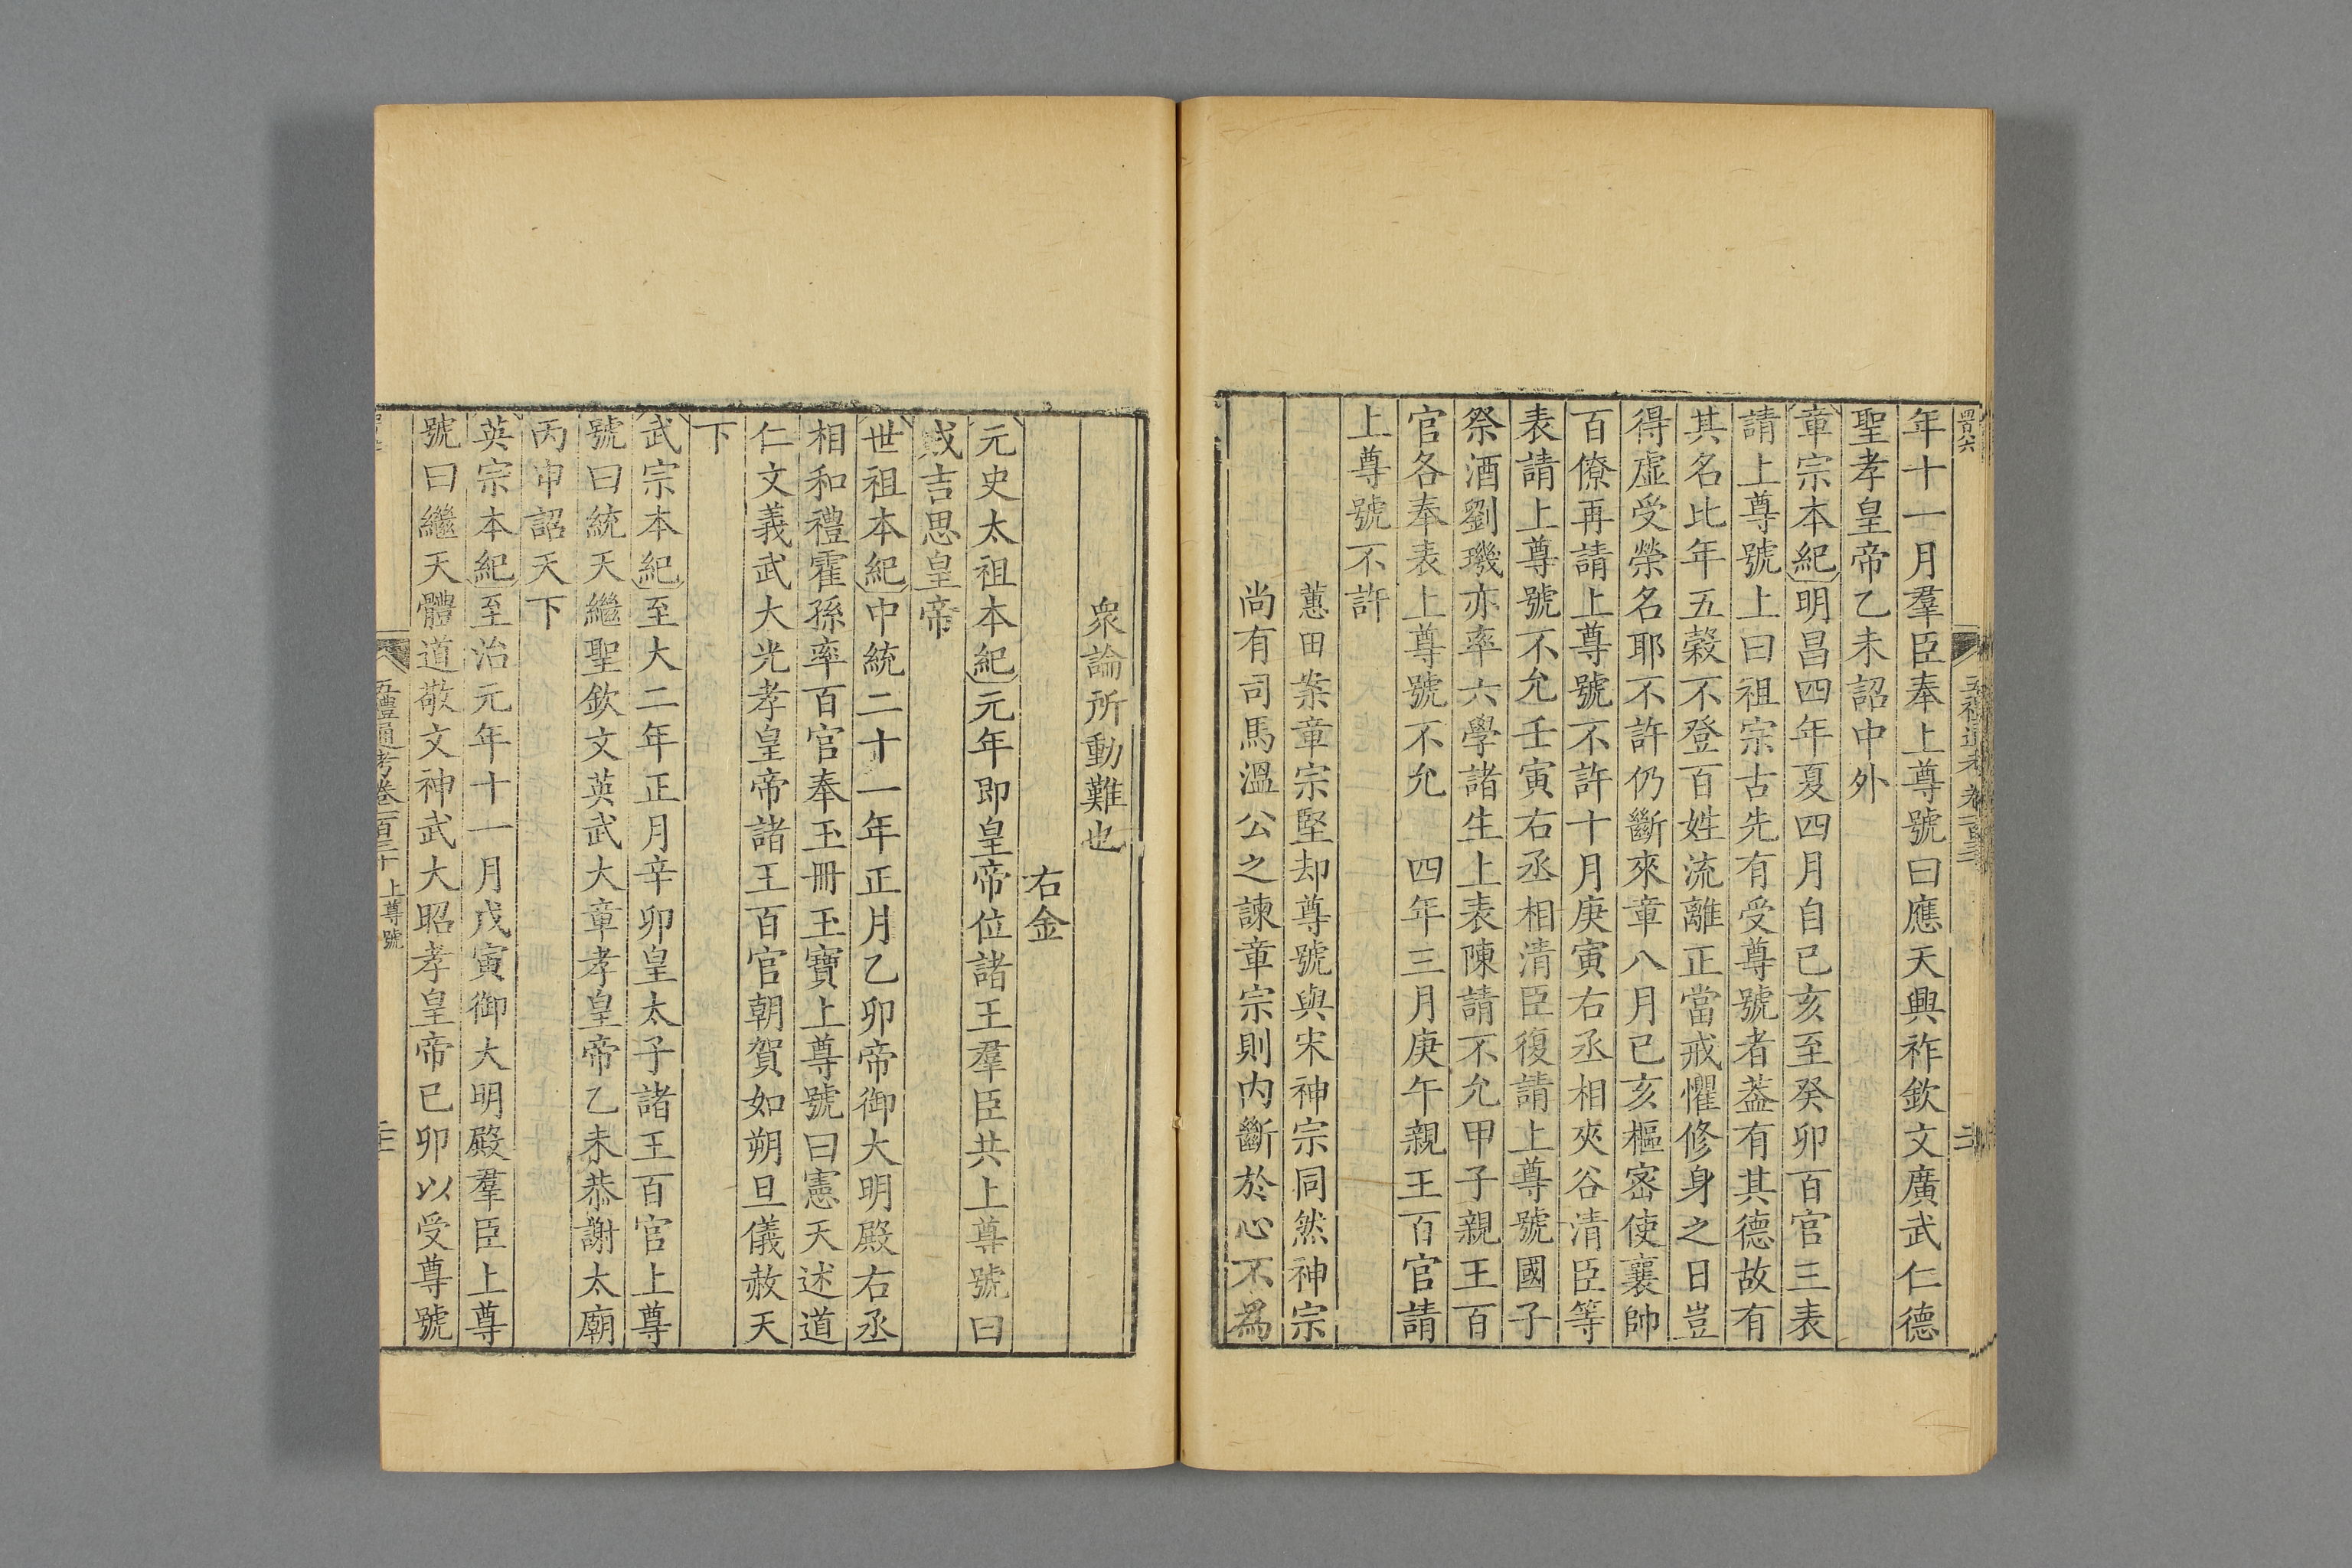 年十一月羣臣奉上尊號曰應天興祚欽文廣武仁德
聖孝皇帝乙未詔中外
章宗本紀明昌四年夏四月自己亥至癸卯百官三表
請上尊號上曰祖宗古先有受尊號者葢有其德故有
其名比年五穀不登百姓流離正當戒懼修身之日豈
得虛受榮名耶不許仍斷來章八月己亥樞密使襄帥
百僚再請上尊號不許十月庚寅右丞相夾谷清臣等
表請上尊號不允壬寅右丞相清臣復請上尊號國子
祭酒劉璣亦率六學諸生上表陳請不允甲子親王百
官各奉表上尊號不允 四年三月庚午親王百官請
上尊號不許
蕙田案章宗堅却尊號與宋神宗同然神宗
尚有司馬溫公之諫章宗則內斷於心不爲
衆論所動難也
右金
元史太祖本紀元年即皇帝位諸王羣臣共上尊號曰
成吉思皇帝
世祖本紀中統二十一年正月乙卯帝御大明殿右丞
相和禮霍孫率百官奉玉冊玉寶上尊號曰憲天述道
仁文義武大光孝皇帝諸王百官朝賀如朔旦儀赦天
下
武宗本紀至大二年正月辛卯皇太子諸王百官上尊
號曰統天繼聖欽文英武大章孝皇帝乙未恭謝太廟
丙申詔天下
英宗本紀至治元年十一月戊寅御大明殿羣臣上尊
號曰繼天體道敬文神武大昭孝皇帝己卯以受尊號
五禮通考卷一百三十 上尊號